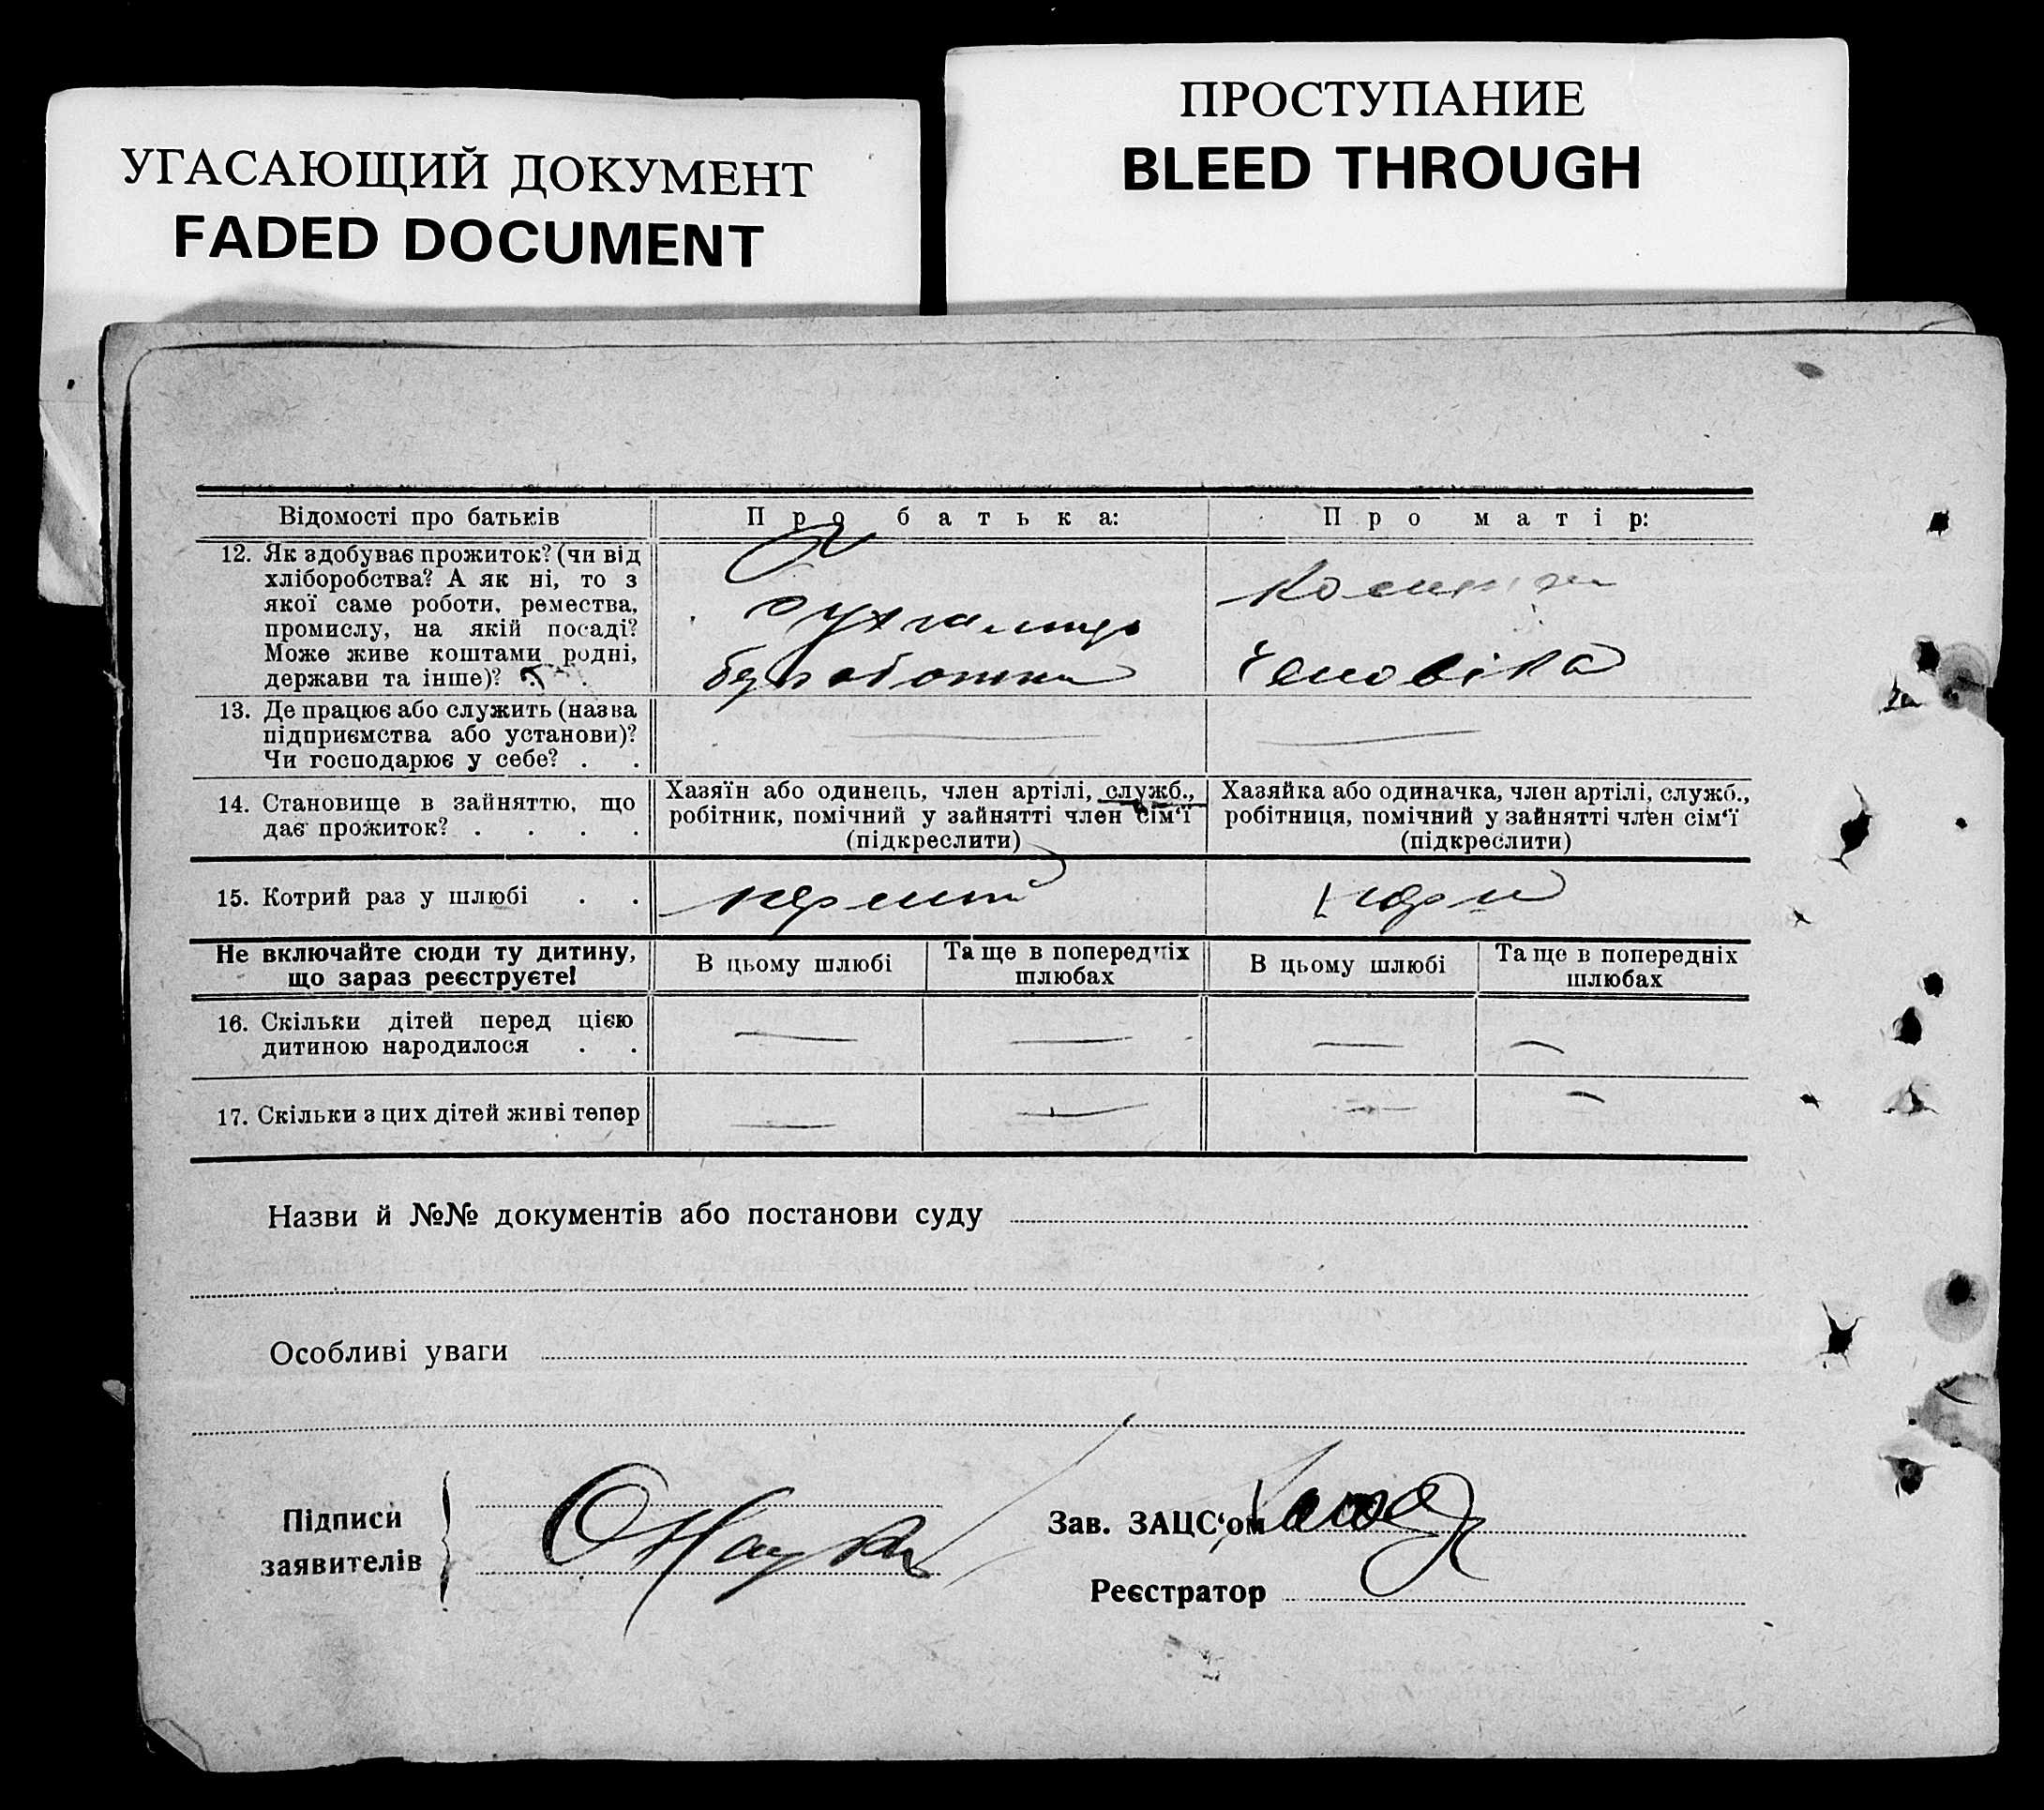 УГАСАЮЩИЙ ДОКУМЕНТ
FADED DOCUMENT
ПРОСТУПАНИЕ
BLEED THROUGH
Відомості про батьків
Про батька:
Про матір:
12. Як здобуває прожиток? (чи від
хліборобства? А як ні, то з
якої саме роботи, ремества,
промислу, на якій посаді?
Може живе коштами родні,
держави та інше)? . .
бухгалтер
безработний
Кошти
чоловіка
13. Де працює або служить (назва
підприємства або установи)?
Чи господарює у себе? . .
14. Становище в зайняттю, що
дає прожиток? . . . .
Хазяїн або одинець, член артілі, служб.,
робітник, помічний у зайнятті член сім'ї
(підкреслити)
Хазяйка або одиначка, член артілі, служб.,
робітниця, помічний у зайнятті член сім'ї
(підкреслити)
15. Котрий раз у шлюбі . .
перший
Не включайте сюди ту дитину,
що зараз реєструєте!
В цьому шлюбі
Та ще в попередніх
шлюбах
В цьому шлюбі
Та ще в попередніх
шлюбах
16. Скільки дітей перед цією
дитиною народилося . .
— — — —
17. Скільки з цих дітей живі тепер
— — — —
Назви й №№ документів або постанови суду
Особливі уваги
Підписи
заявителів
Зав. ЗАЦС'ом
Реєстратор